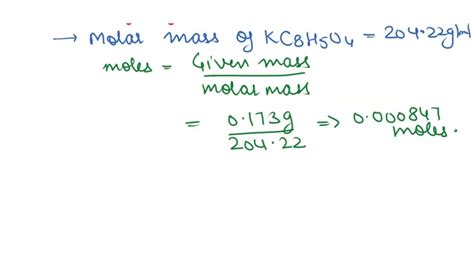 → Molar mass of KC8H5O4 = 204.22g/ml
moles = Given mass
molar mass
= 0.173g => 0.000847
204.22 moles.